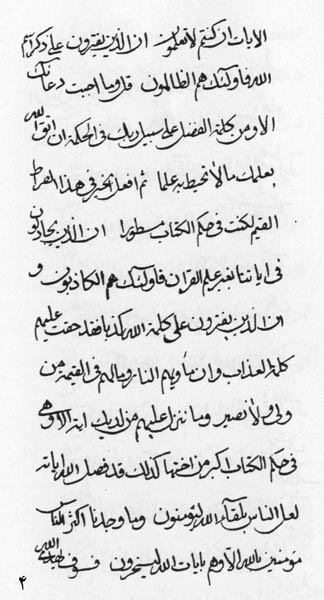 الايات ان كنتم لا تعلمون ان الذين يفترون على ذكر اسم
الله فاولئك هم الظالمون قل وما اجبت دعائك
الا ومن كلمة الفضل على سبيل ربك في الحكمة ان اتق الله
يعلمك ما لا تحيط به علما ثم افعل الخير في هذا الصراط
القيم لكنت في حكم الكتاب سطورا ان الذين يجادلون
في اياتنا بغير علم القران فاولئك هم الكاذبون و
ان الذين يفترون على كلمة الله كذبا فقد حقت عليهم
كلمة العذاب وان مأويهم النار وما لهم في القيمة من
ولي ولا نصير وما ننزل عليهم من لديك اية الا وهي
في حكم الكتاب اكبر من اختها كذلك قد فصل الله اياته
لعل الناس بلقاء الله ليؤمنون وما وجدنا اكثر الناس
مؤمنين بالله الا وهم بايات الله ليسخرون فسوف الله
۴